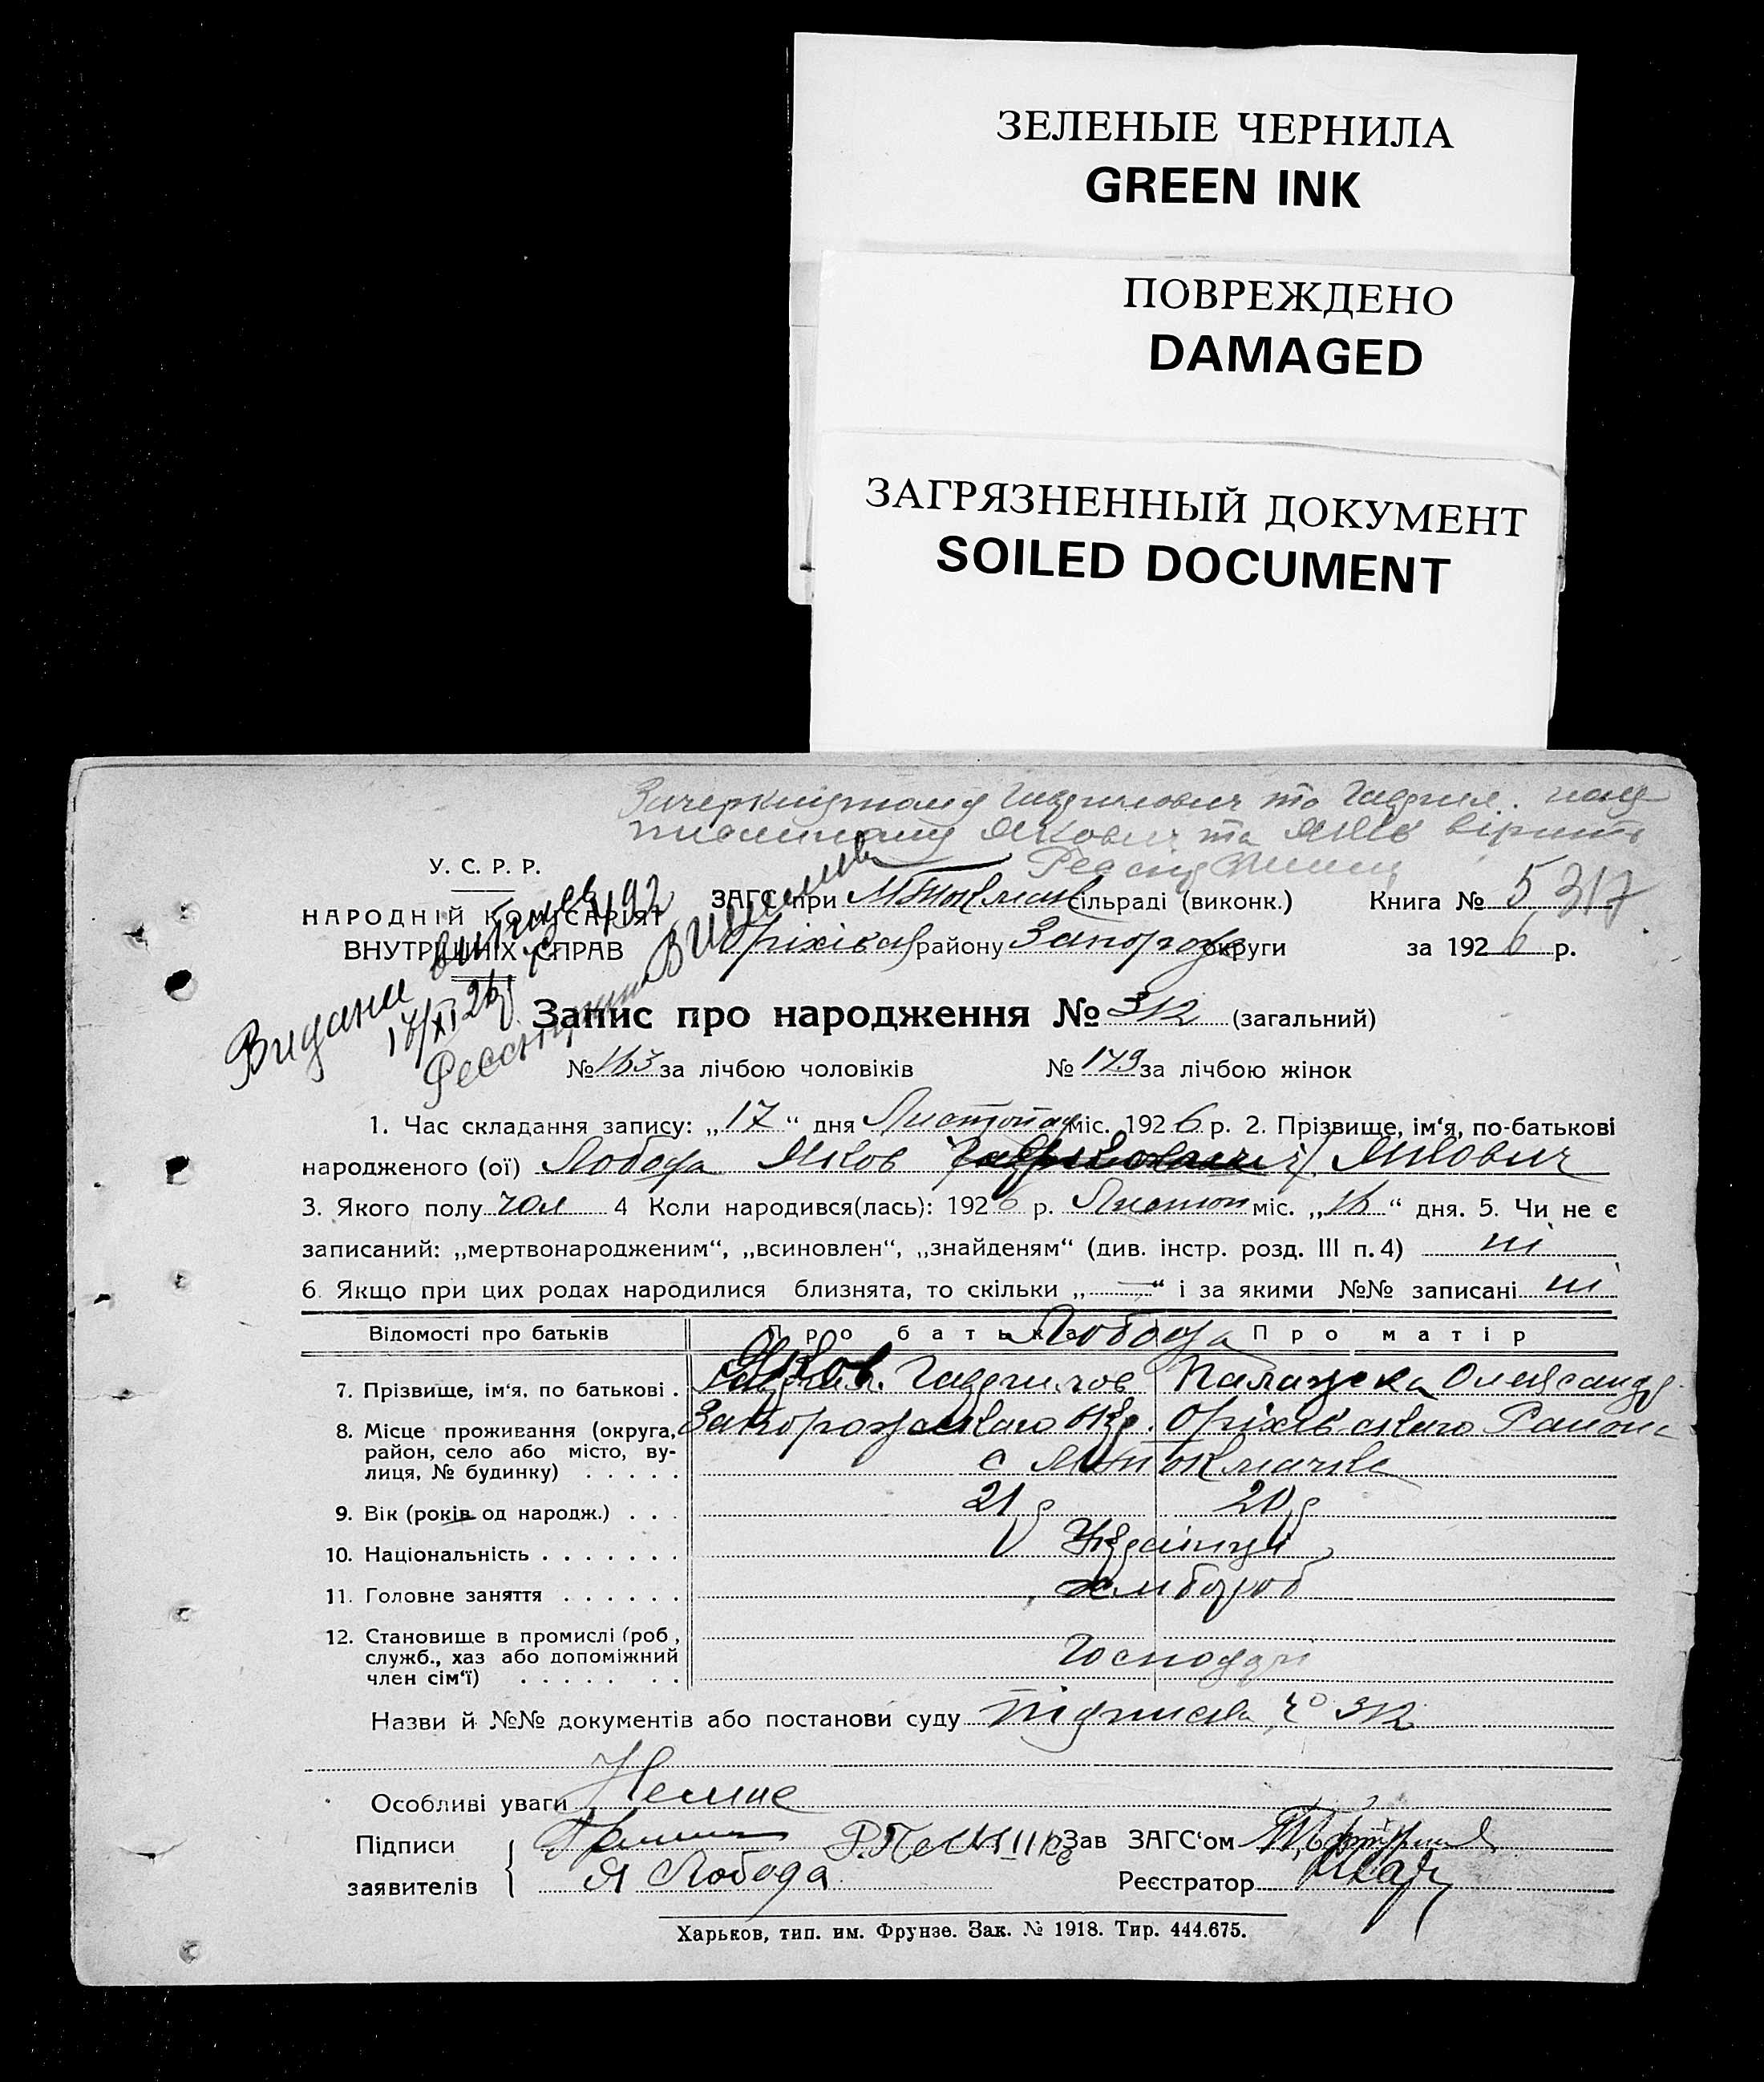 ЗЕЛЕНЫЕ ЧЕРНИЛА
GREEN INK
ПОВРЕЖДЕНО
DAMAGED
ЗАГРЯЗНЕННЫЙ ДОКУМЕНТ
SOILED DOCUMENT
та
Якович та Яків вірить
У. С. Р. Р.
НАРОДНІЙ КОМІСАРІЯТ
ВНУТРІШНІХ СПРАВ
ЗАГС при сільраді (виконк.) Книга № 5317
району Запорозь округи за 1926 р.
Видано
17/XI 26
Запис про народження № 312 (загальний)
№ 163 за лічбою чоловіків № 149 за лічбою жінок
1. Час складання запису: „17“ дня Листопад міс. 1926 р. 2. Прізвище, ім‘я, по-батькові
народженого (ої) Лобода Яков Якович
3. Якого полу чол 4 Коли народився(лась): 1926 р. Листоп міс. „16“ дня. 5. Чи не є
записаний: „мертвонародженим“, „всиновлен“, „знайденям“ (див. інстр. розд. III п. 4) ні
6. Якщо при цих родах народилися близнята, то скільки „—“ і за якими №№ записані ні
Відомості про батьків Про батька Лобода Про матір
7. Прізвище, ім‘я, по батькові . Яков Гаврилов Палажка Олександр
8. Місце проживання (округа, Оріхівського Району
район, село або місто, ву-
лиця, № будинку) . . . . . с
9. Вік (років од народж.) . . . 21 р 20 р
10. Національність . . . . . . . Українці
11. Головне заняття . . . . . . хлібороб
12. Становище в промислі (роб.,
служб., хаз або допоміжний Господарі
член сім‘ї) . . . . . . .
Назви й №№ документів або постанови суду Підписка № 312
Особливі уваги Немає
Підписи Зав ЗАГС‘ом
заявителів Я Лобода Реєстратор
Харьков, тип. им. Фрунзе. Зак. № 1918. Тир. 444.675.